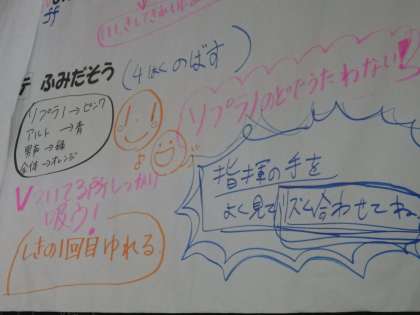 ff
ふみだそう (4拍のばす)
ソプラノ→ピンク
アルト→青
男声→緑
全体→オレンジ
ソプラノのどでうたわない!
Vついてる所しっかり
吸う!
しきの1回目ゆれる
指揮の手を
よく見てリズム合わせてね